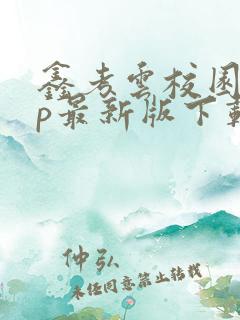 鑫考雲校園
p最新版下載
仲弘
未经同意禁止转载